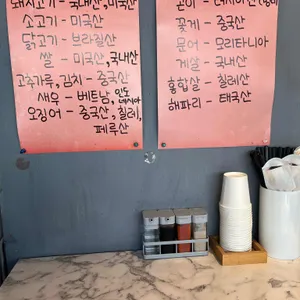 돼지고기 - 국내산, 미국산
소고기 - 미국산
닭고기 - 브라질산
쌀 - 미국산, 국내산
고추가루, 김치 - 중국산
새우 - 베트남, 인도네시아
오징어 - 중국산, 칠레,
페루산
꽃게 - 중국산
문어 - 모리타니아
게살 - 국내산
홍합살 - 칠레산
해파리 - 태국산